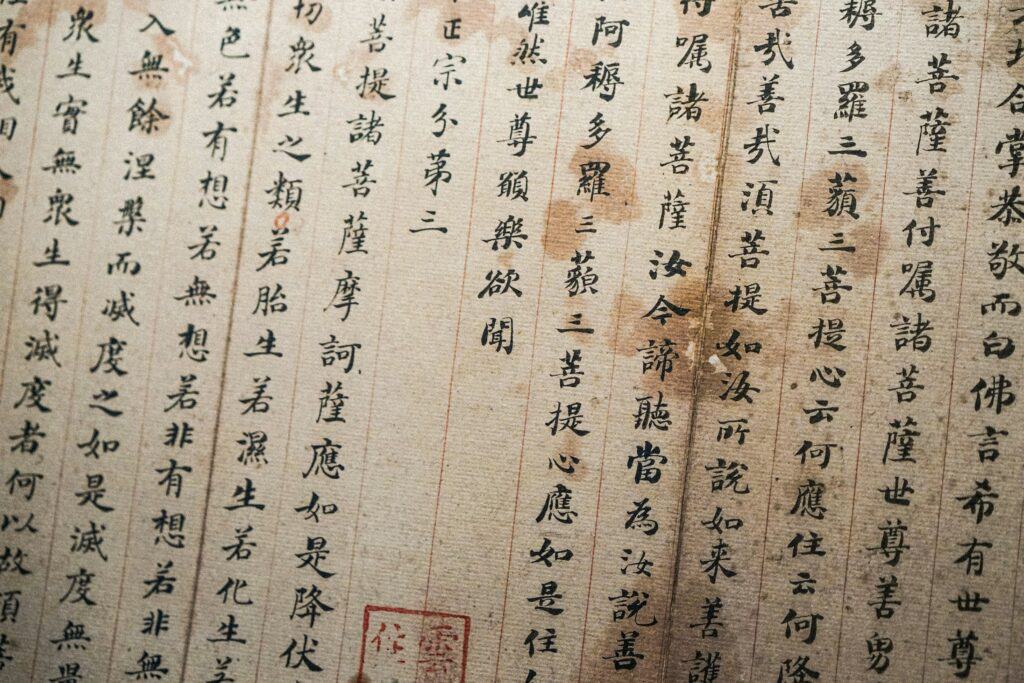 地合掌恭敬而白佛言希有世尊
諸菩薩善付嘱諸菩薩世尊善男
耨多羅三藐三菩提心云何應住云何降
善哉善哉須菩提如汝所說如来善護
付嘱諸菩薩汝今諦聽當為汝說善
阿耨多羅三藐三菩提心應如是住
唯然世尊願樂欲聞
正宗分第三
菩提諸菩薩摩訶薩應如是降伏
切衆生之類若胎生若濕生若化生若
無色若有想若無想若非有想若非無
入無餘涅槃而滅度之如是滅度無量
衆生實無衆生得滅度者何以故須菩
有我相人相